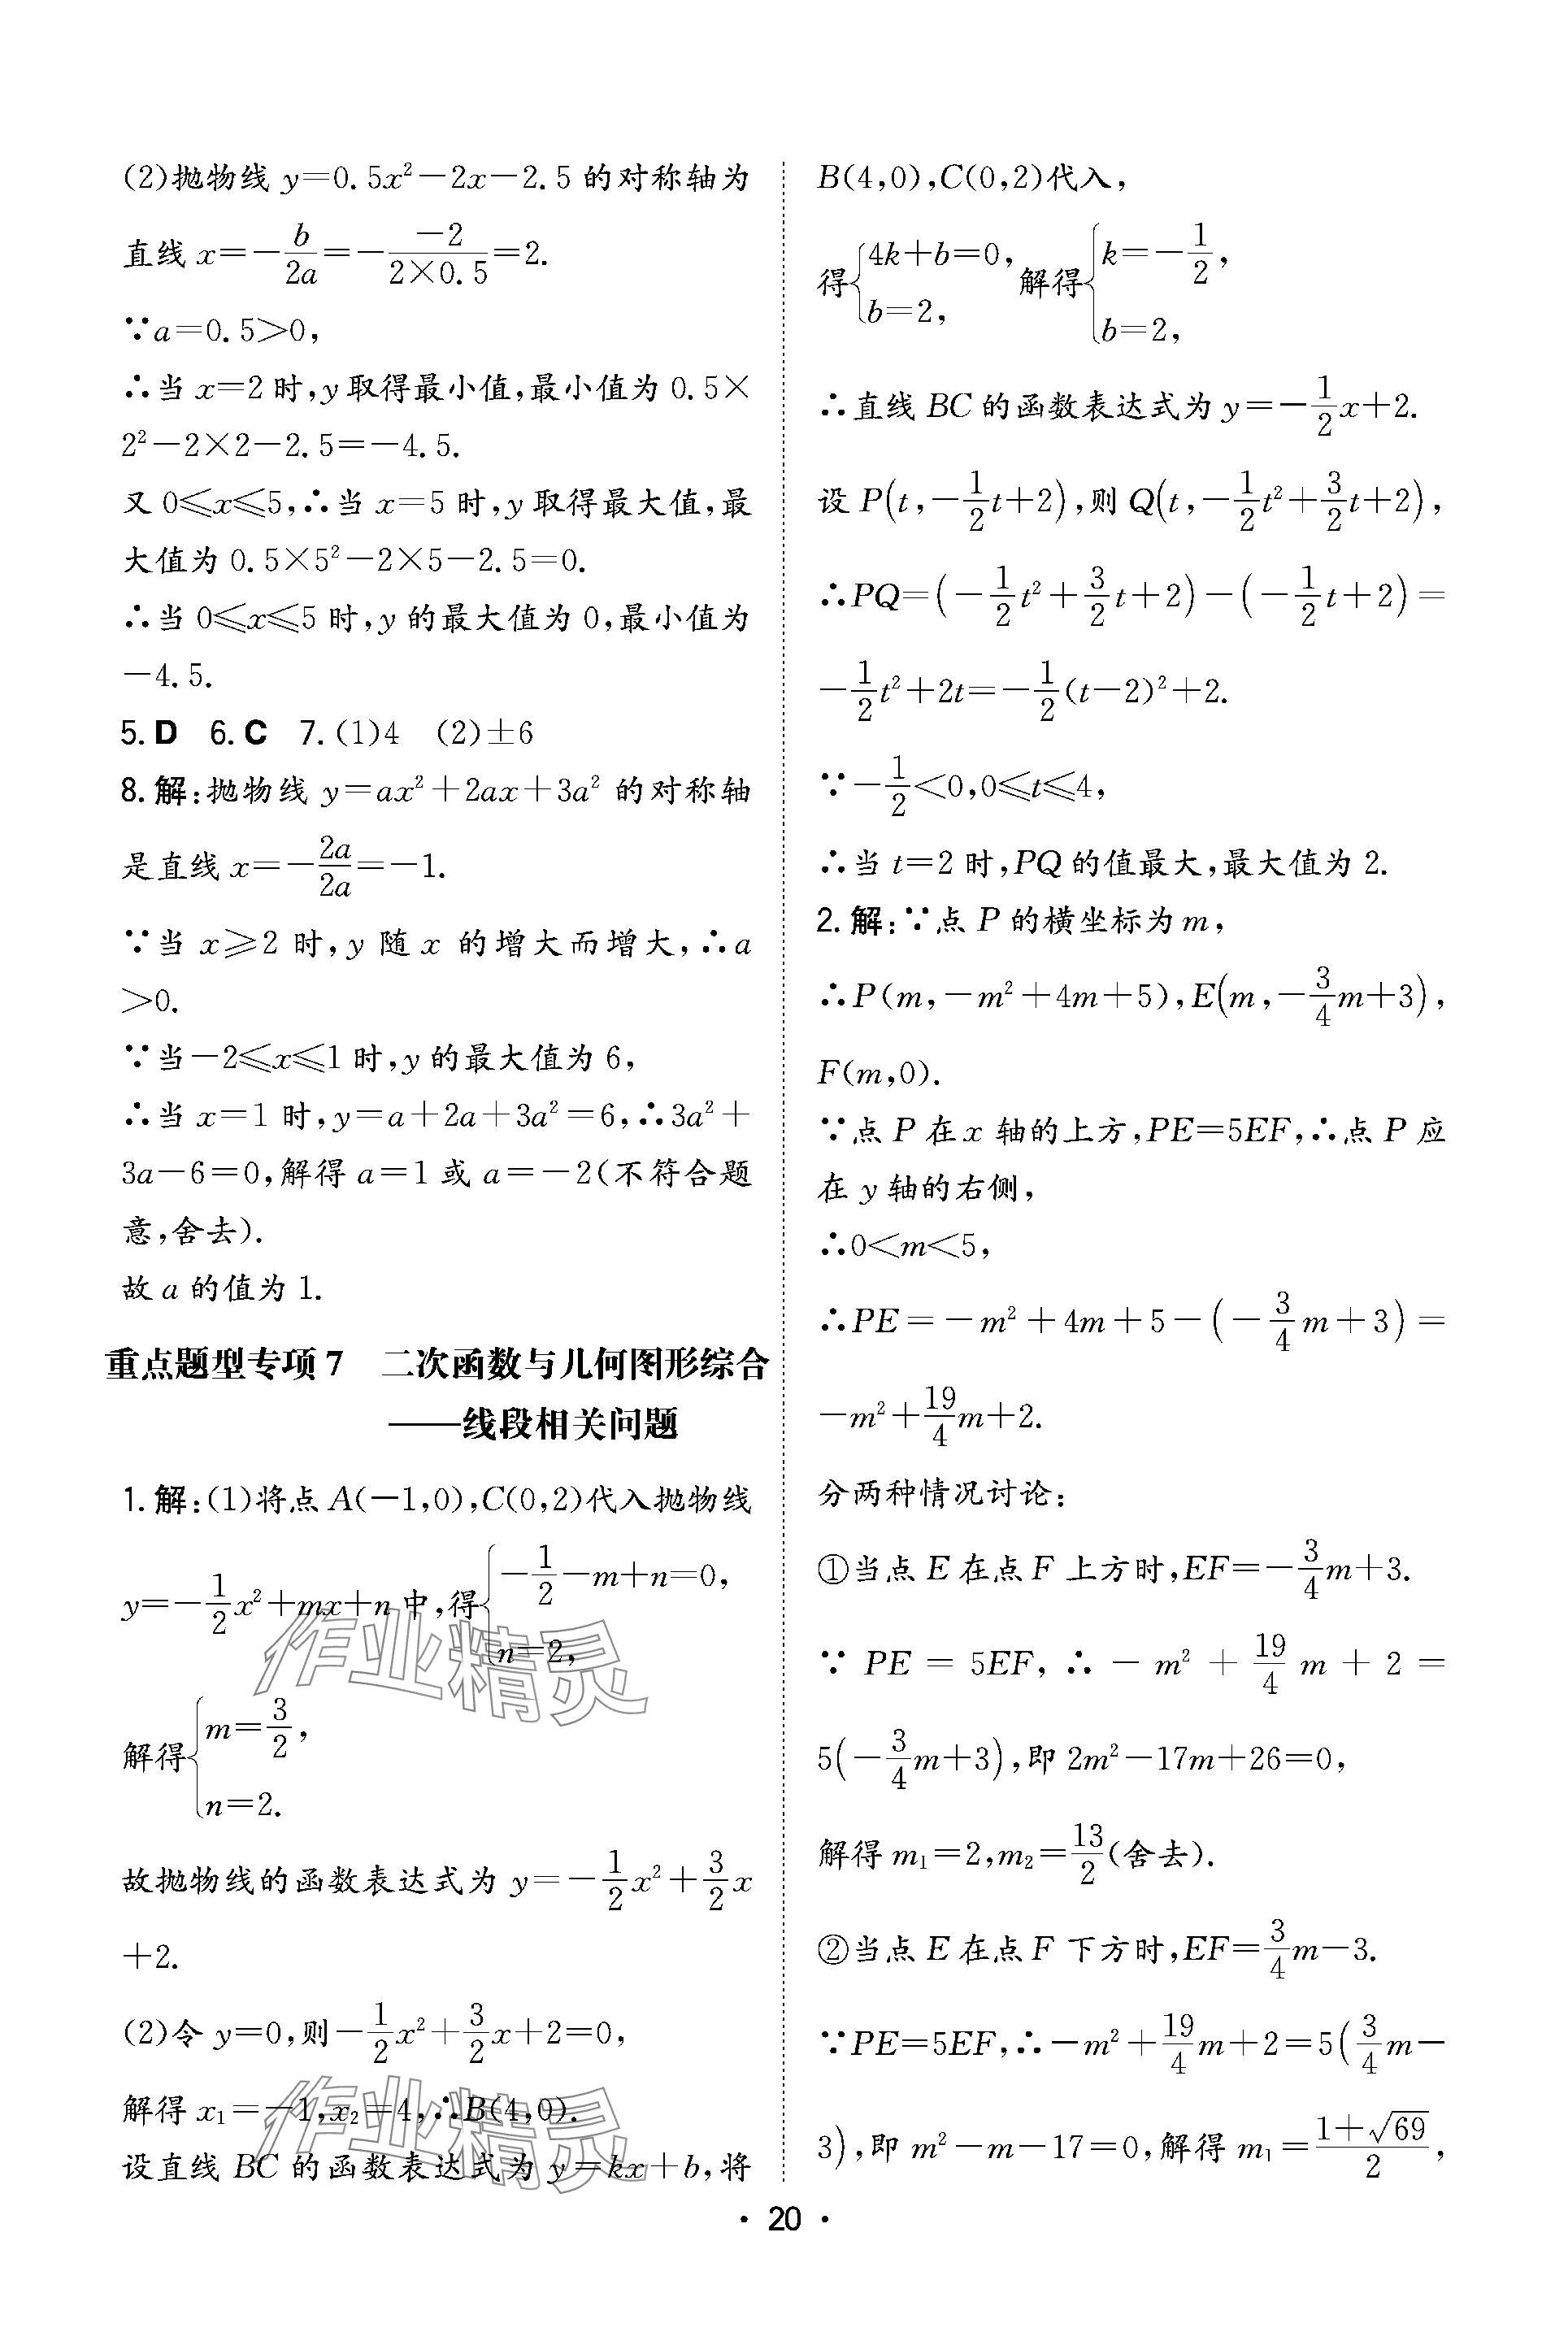 (2)抛物线 y=0.5x²-2x-2.5 的对称轴为
直线 x=-b/2a=-(-2)/(2×0.5)=2.
∵a=0.5>0,
∴当 x=2 时,y取得最小值,最小值为 0.5×
2²-2×2-2.5=-4.5.
又 0≤x≤5,∴当 x=5 时,y取得最大值,最
大值为 0.5×5²-2×5-2.5=0.
∴当 0≤x≤5 时,y 的最大值为 0,最小值为
-4.5.
5.D 6.C 7.(1)4 (2)±6
8.解:抛物线 y=ax²+2ax+3a² 的对称轴
是直线 x=-2a/2a=-1.
∵当 x≥2 时,y 随 x 的增大而增大,∴a
>0.
∵当-2≤x≤1 时,y 的最大值为 6,
∴当 x=1 时,y=a+2a+3a²=6,∴3a²+
3a-6=0,解得 a=1 或 a=-2(不符合题
意,舍去).
故 a 的值为 1.
重点题型专项7 二次函数与几何图形综合
——线段相关问题
1.解:(1)将点 A(-1,0),C(0,2)代入抛物线
y=-1/2x²+mx+n 中,得{-1/2-m+n=0,
n=2,
解得{m=3/2,
n=2.
故抛物线的函数表达式为 y=-1/2x²+3/2x
+2.
(2)令 y=0,则-1/2x²+3/2x+2=0,
解得 x₁=-1,x₂=4,∴B(4,0).
设直线 BC 的函数表达式为 y=kx+b,将
B(4,0),C(0,2)代入,
得{4k+b=0, b=2, 解得{k=-1/2, b=2,
∴直线 BC 的函数表达式为 y=-1/2x+2.
设 P(t,-1/2t+2),则 Q(t,-1/2t²+3/2t+2),
∴PQ=(-1/2t²+3/2t+2)-(-1/2t+2)=
-1/2t²+2t=-1/2(t-2)²+2.
∵-1/2<0,0≤t≤4,
∴当 t=2 时,PQ 的值最大,最大值为 2.
2.解:∵点 P 的横坐标为 m,
∴P(m,-m²+4m+5),E(m,-3/4m+3),
F(m,0).
∵点 P 在 x 轴的上方,PE=5EF,∴点 P 应
在 y 轴的右侧,
∴0<m<5,
∴PE=-m²+4m+5-(-3/4m+3)=
-m²+19/4m+2.
分两种情况讨论:
①当点 E 在点 F 上方时,EF=-3/4m+3.
∵PE=5EF,∴-m²+19/4m+2=
5(-3/4m+3),即 2m²-17m+26=0,
解得 m₁=2,m₂=13/2(舍去).
②当点 E 在点 F 下方时,EF=3/4m-3.
∵PE=5EF,∴-m²+19/4m+2=5(3/4m-
3),即 m²-m-17=0,解得 m₁=(1+√69)/2,
作业精灵
作业精灵
· 20 ·